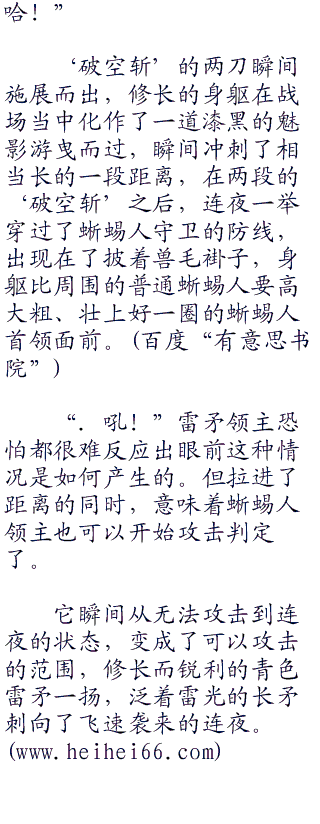 哈！”
‘破空斩’的两刀瞬间
施展而出，修长的身躯在战
场当中化作了一道漆黑的魅
影游曳而过，瞬间冲刺了相
当长的一段距离，在两段的
‘破空斩’之后，连夜一举
穿过了蜥蜴人守卫的防线，
出现在了披着兽毛褂子，身
躯比周围的普通蜥蜴人要高
大粗、壮上好一圈的蜥蜴人
首领面前。(百度“有意思书
院”)
“．吼！”雷矛领主恐
怕都很难反应出眼前这种情
况是如何产生的。但拉进了
距离的同时，意味着蜥蜴人
领主也可以开始攻击判定
了。
它瞬间从无法攻击到连
夜的状态，变成了可以攻击
的范围，修长而锐利的青色
雷矛一扬，泛着雷光的长矛
刺向了飞速袭来的连夜。
(www.heihei66.com)